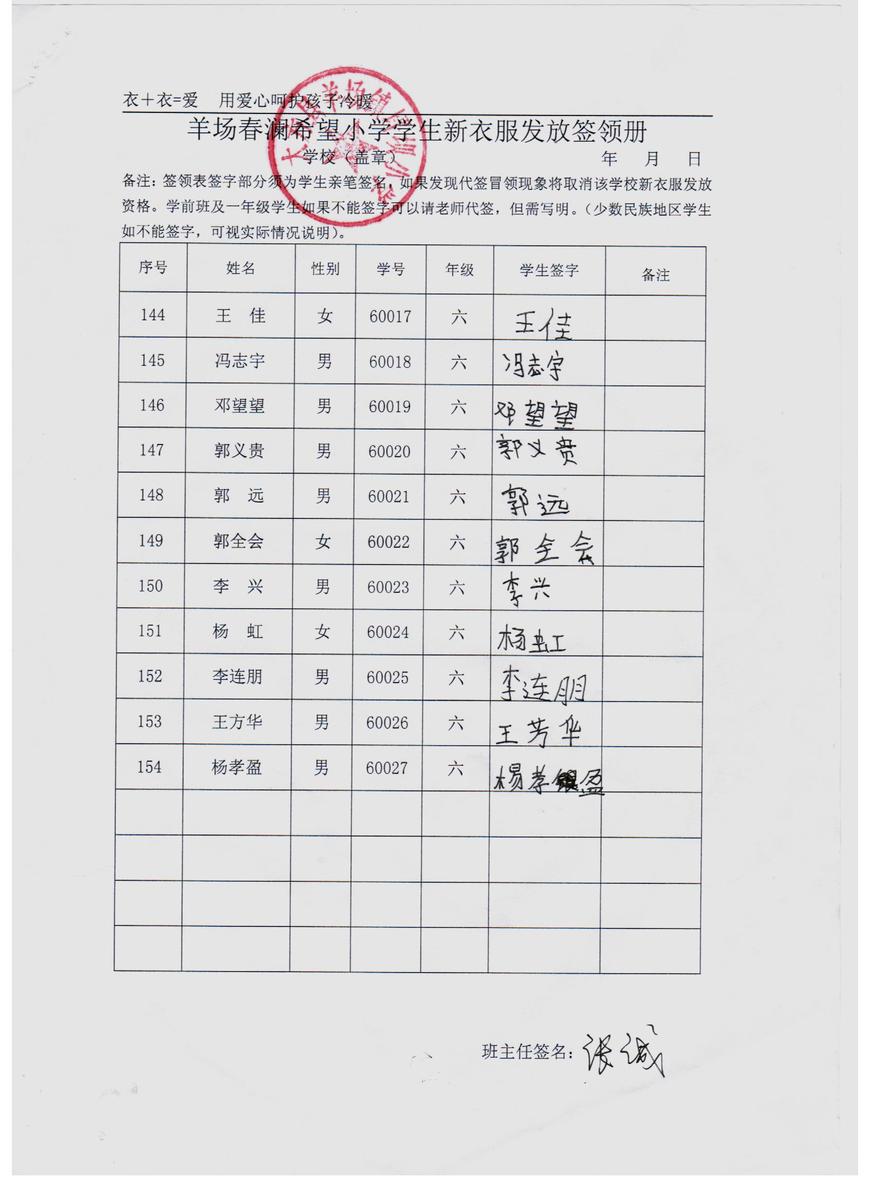 衣+衣=爱 用爱心呵护孩子冷暖
羊场春澜希望小学学生新衣服发放签领册
学校(盖章) 年 月 日
备注:签领表签字部分须为学生亲笔签名,如果发现代签冒领现象将取消该学校新衣服发放
资格。学前班及一年级学生如果不能签字可以请老师代签,但需写明。(少数民族地区学生
如不能签字,可视实际情况说明)。
序号 姓名 性别 学号 年级 学生签字 备注
144 王 佳 女 60017 六 王佳
145 冯志宇 男 60018 六 冯志宇
146 邓望望 男 60019 六 邓望望
147 郭义贵 男 60020 六 郭义贵
148 郭 远 男 60021 六 郭远
149 郭全会 女 60022 六 郭全会
150 李 兴 男 60023 六 李兴
151 杨 虹 女 60024 六 杨虹
152 李连朋 男 60025 六 李连朋
153 王方华 男 60026 六 王芳华
154 杨孝盈 男 60027 六 杨孝盈
班主任签名:张诚